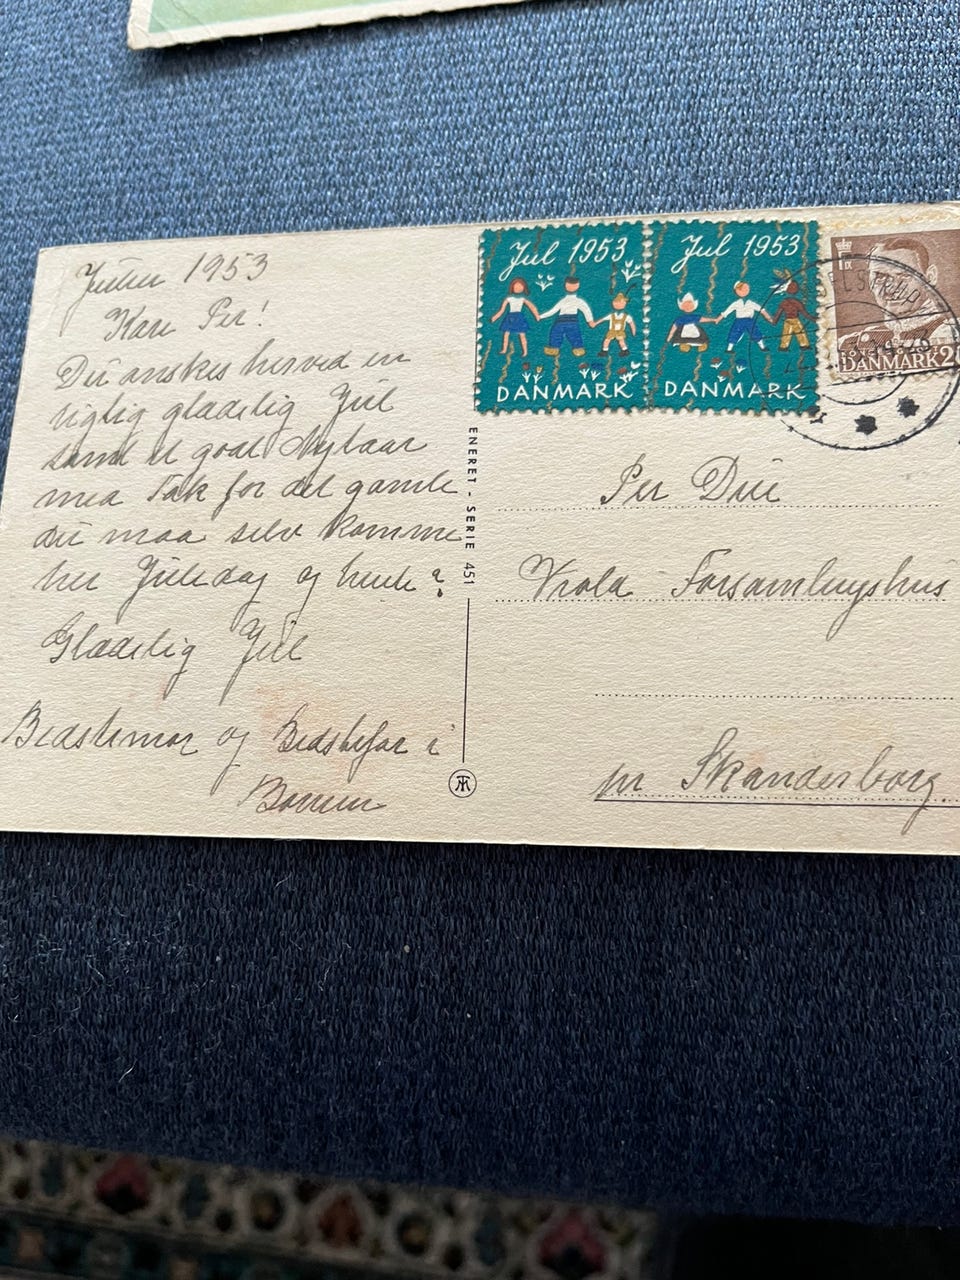 Julen 1953
Kære Per!
Du ønskes herved en
rigtig glædelig Jul
samt et godt Nytaar
med Tak for det gamle
du maa selv komme
her Juledag og hente ?
Glædelig Jul
Bedstemor og Bedstefar i
ENERET - SERIE 451
Jul 1953
DANMARK
Jul 1953
DANMARK
DANMARK
Per Due
Forsamlingshus
pr Skanderborg.